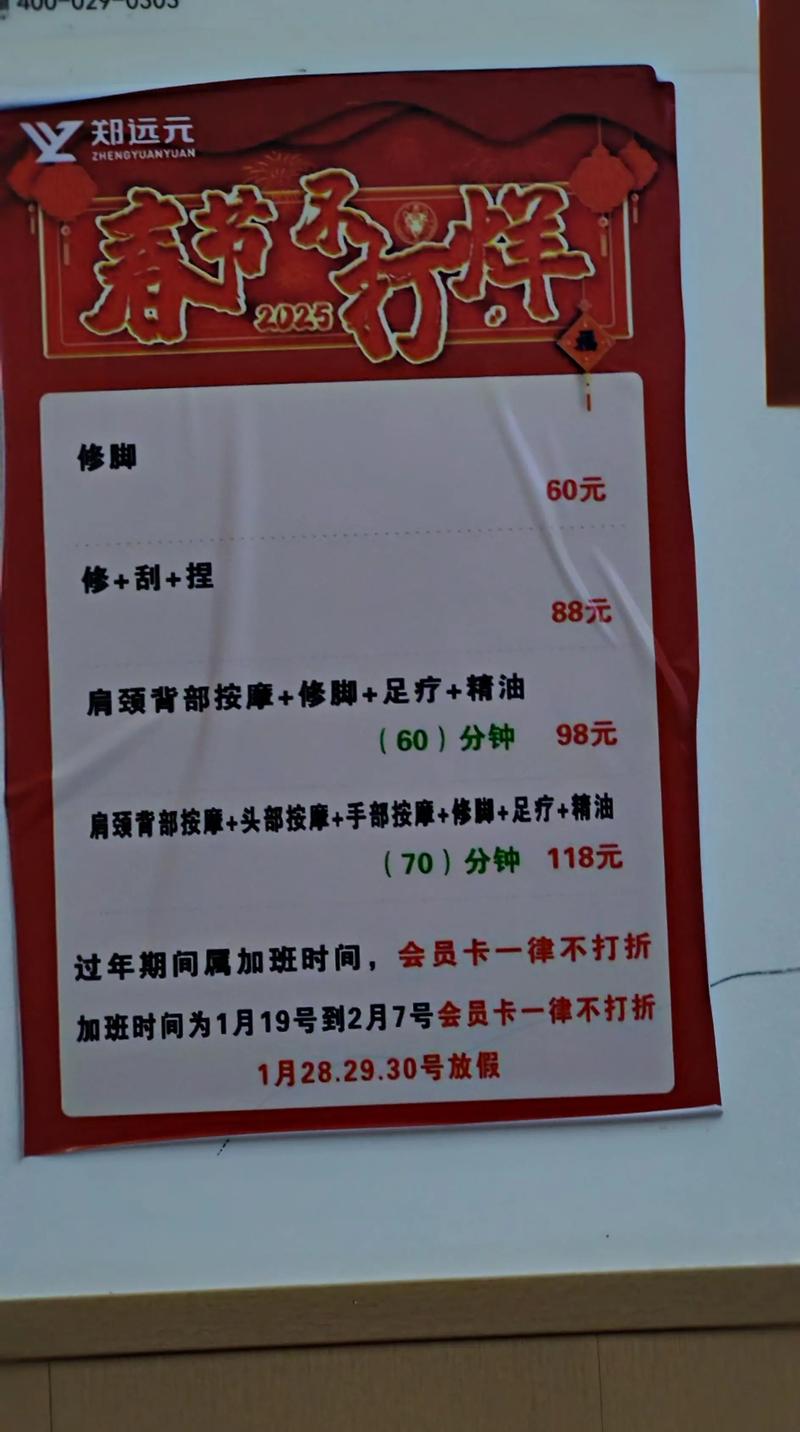 400-029-0303
郑远元
ZHENGYUANYUAN
春节不打烊
2025
福
修脚
60元
修+刮+捏
88元
肩颈背部按摩+修脚+足疗+精油
(60)分钟 98元
肩颈背部按摩+头部按摩+手部按摩+修脚+足疗+精油
(70)分钟 118元
过年期间属加班时间，会员卡一律不打折
加班时间为1月19号到2月7号会员卡一律不打折
1月28.29.30号放假